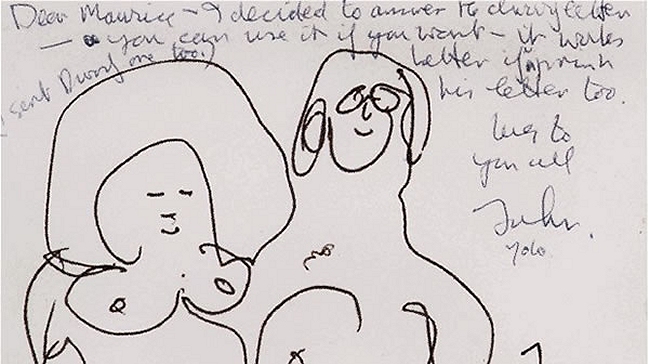 Dear Maurice - I decided to answer the letter
- you can use it if you want - it works
sent Dwarf one too.)
better if you print
his letter too.
luv to
you all
John.
Yoko